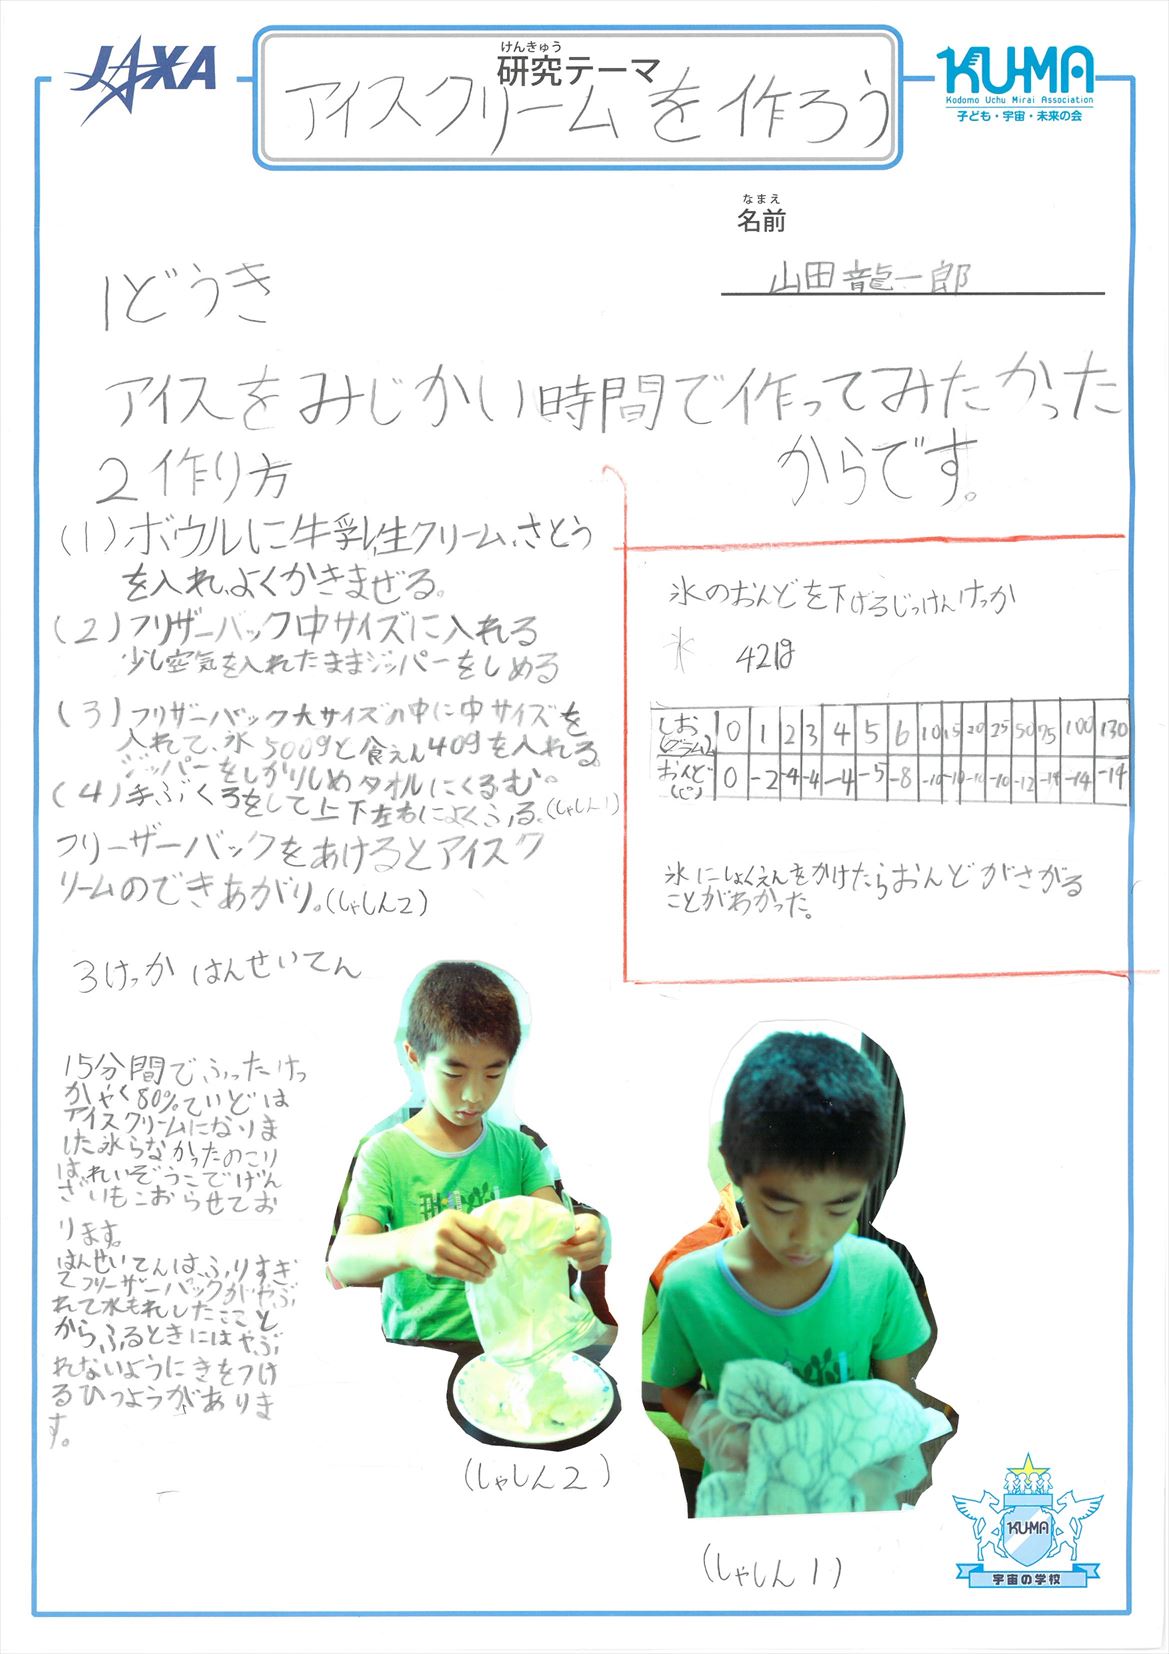 JAXA
けんきゅう
研究テーマ
アイスクリームを作ろう
KU-MA
Kodomo Uchu Mirai Association
子ども・宇宙・未来の会
なまえ
名前
山田龍一郎
1どうき
アイスをみじかい時間で作ってみたかった
からです。
2作り方
(1)ボウルに牛乳、生クリーム、さとう
を入れ、よくかきまぜる。
(2)フリザーバック中サイズに入れる
少し空気を入れたままジッパーをしめる
(3)フリザーバック大サイズの中に中サイズを
入れて、氷500gと食えん40gを入れる。
ジッパーをしかりしめタオルにくるむ。
(4)手ぶくろをして上下左右によくふる。(しゃしん1)
フリーザーバックをあけるとアイスク
リームのできあがり。(しゃしん2)
氷のおんどを下げるじっけんけっか
氷 421g
しお(グラム) 0 1 2 3 4 5 6 10 15 20 25 50 75 100 130
おんど(ど) 0 -2 -4 -4 -4 -5 -8 -10 -10 -10 -10 -12 -14 -14 -14
氷にしょくえんをかけたらおんどがさがる
ことがわかった。
3けっか はんせいてん
15分間でふったけっ
かやく80%ていどは
アイスクリームになりま
した氷らなかったのこり
はれいぞうこでげん
ざいもこおらせてお
ります。
はんせいてんはふりすぎ
てフリーザーバックがやぶ
れて水もれしたこと
からふるときにはやぶ
れないようにきをつけ
るひつようがありま
す。
(しゃしん2)
(しゃしん1)
KU-MA
宇宙の学校